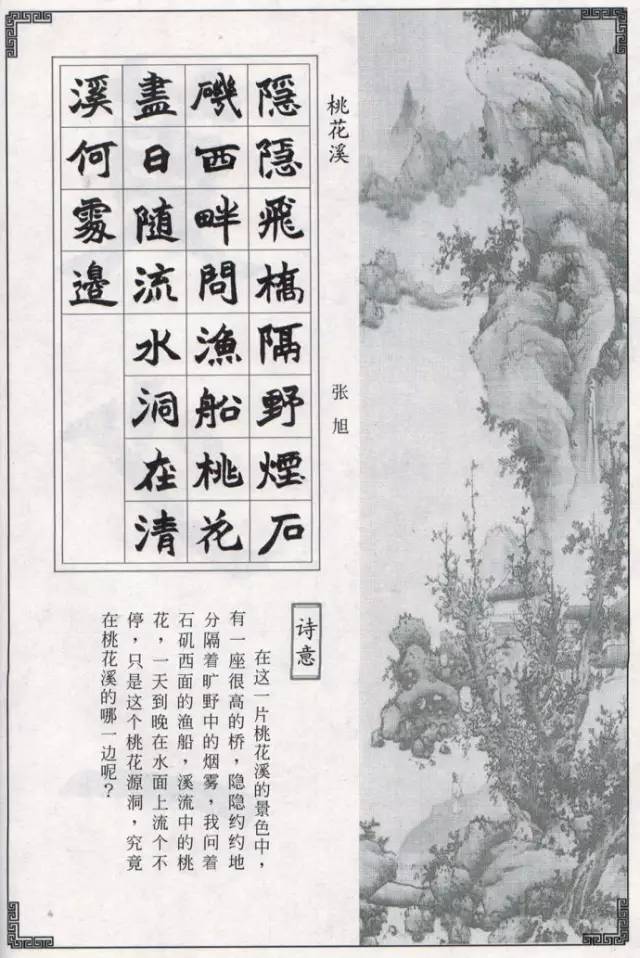 桃花溪
张旭
隱隱飛橋隔野煙石
磯西畔問漁船桃花
盡日隨流水洞在清
溪何處邊
诗意
在这一片桃花溪的景色中，
有一座很高的桥，隐隐约约地
分隔着旷野中的烟雾，我问着
石矶西面的渔船，溪流中的桃
花，一天到晚在水面上流个不
停，只是这个桃花源洞，究竟
在桃花溪的哪一边呢？